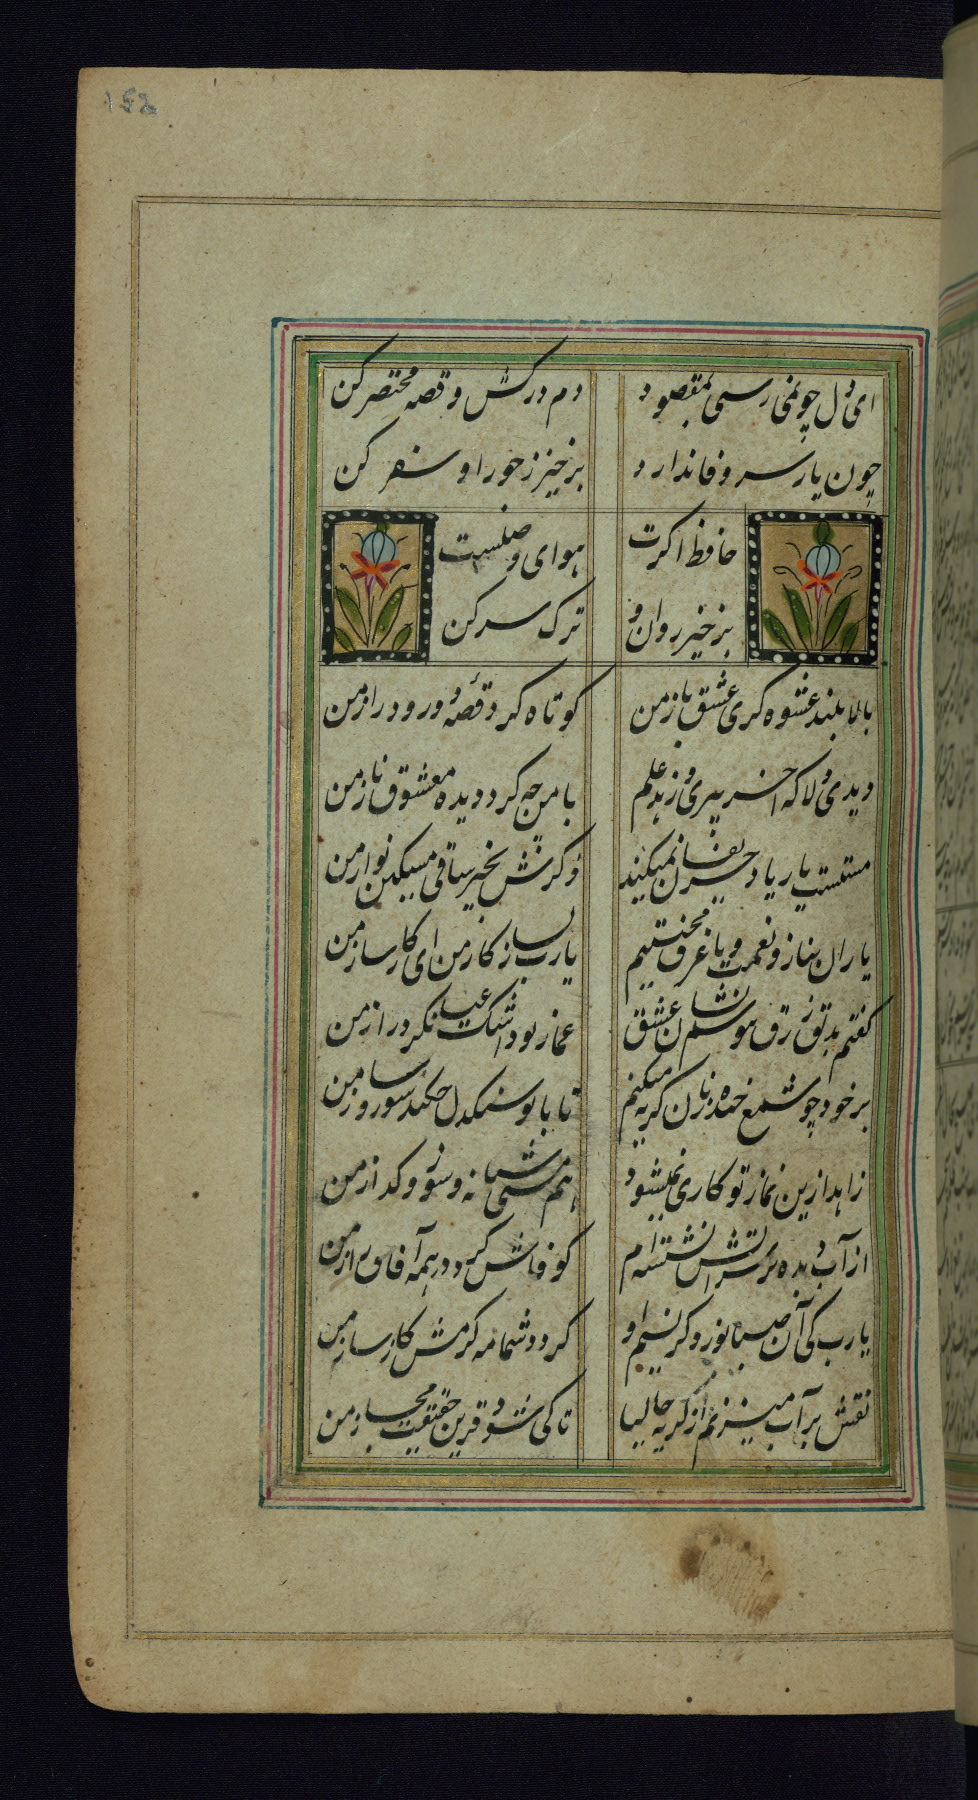 152
ای دل چو نمی رسی بمقصود دم درکش و قصه مختصر کن
چون یار سر وفا ندارد برخیز ز جور او سفر کن
حافظ اکرت هوای وصلست
برخیز روان و ترک سر کن
بالا بلند عشوه کری عشق باز من کوتاه کرد قصه و ورود دراز من
دیدی دلا که آخر پیری و زهد علم با من چه کرد دیده معشوق ناز من
مستست یار یاد حریفان نمیکند ذکرش بخیر ساقی مسکین نواز من
یاران بناز و نعمت و یا غرق محنتیم یا رب بساز کار من ای کارساز من
کفتم بدتوز زرق موشانم نشان عشق غماز بود اشک عیان کرد راز من
بر خود چو شمع خنده زنان کریه میکنم تا با تو سنکدل چکند سوز و ساز من
زاهد ازین نماز تو کاری نمیشود هم مستی شبانه و سوز و کداز من
از آب دیده بر سر آتش نشسته ام کو فاش کرد در همه آفاق راز من
یا رب کی آن صبا بوزد کز نسیم او کردد شمامه کرمش کارساز من
نقش بر آب میزنم از کریه حالیا تا کی شود قرین حقیقت مجاز من